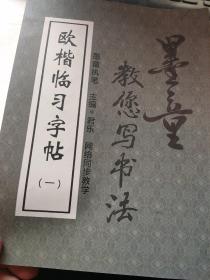 墨童
教您写书法
墨童执笔 主编·君乐 网络同步教学
欧楷临习字帖
(一)